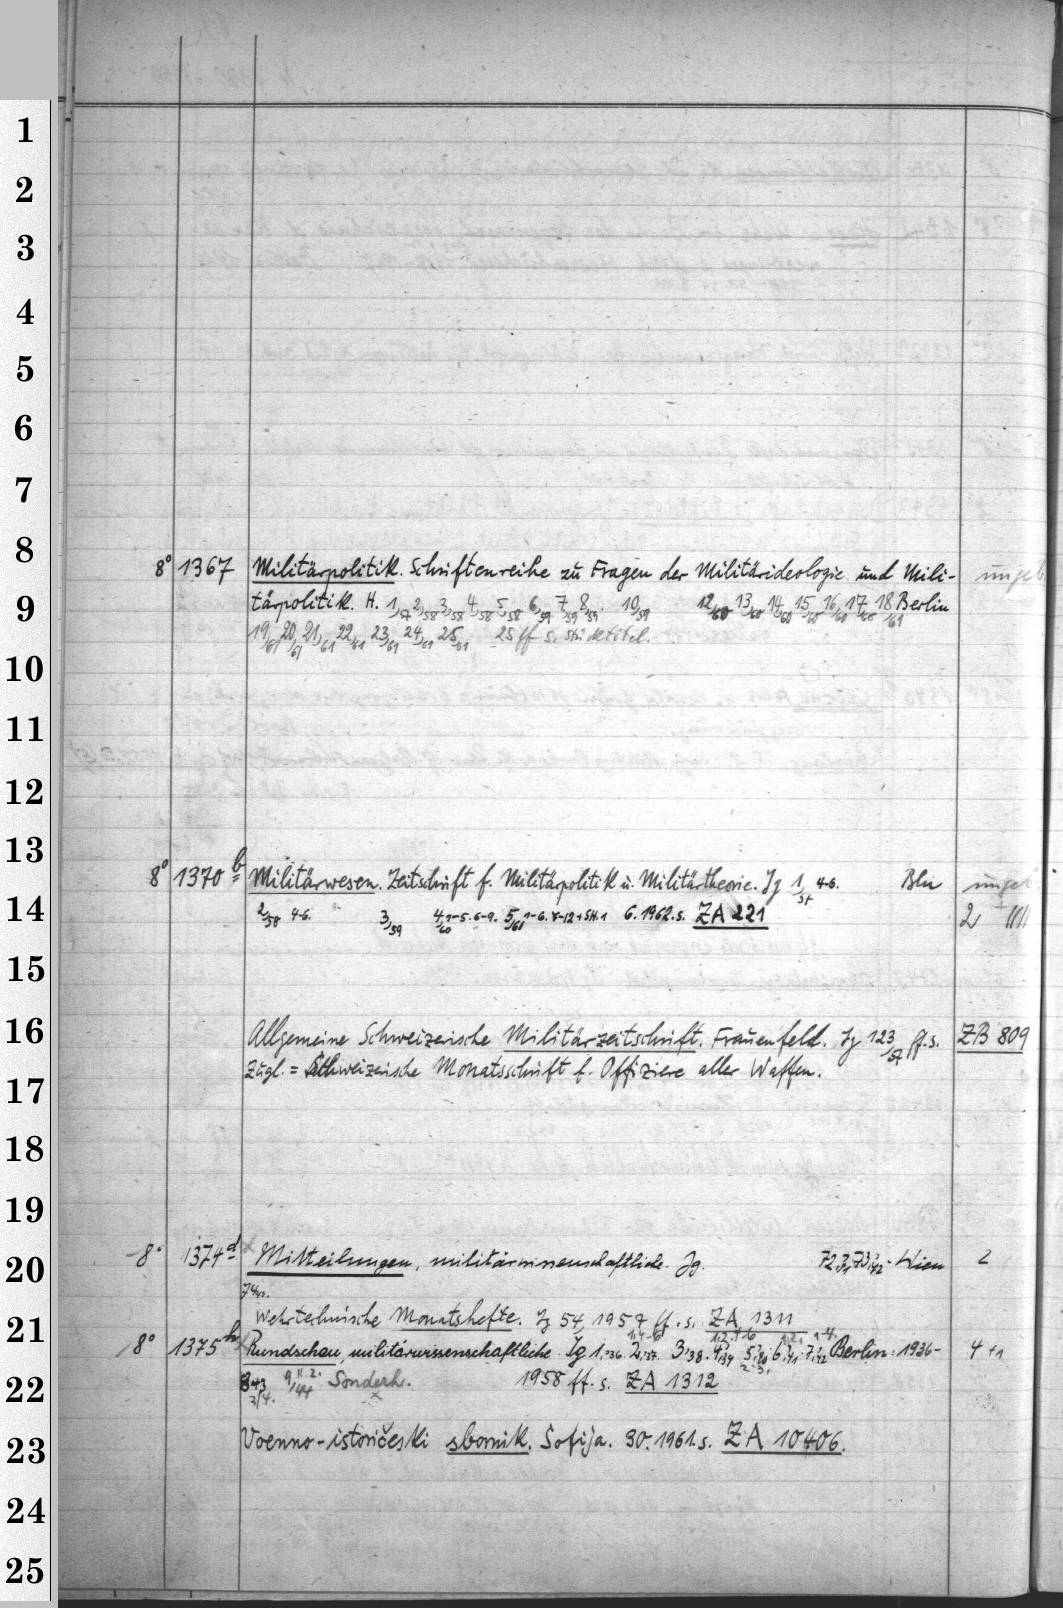 1
2
3
4
5
6
7
8
8° 1367 Militärpolitik. Schriftenreihe zu Fragen der Militärideologie und Mili- ungeb.
9
tärpolitik. H. 1,57 2,58 3,58 4,58 5,58 6,59 7,59 8,59. 10,59 12,60 13,60 14,60 15,60 16,60 17,60 18,61 Berlin
19,61 20,61 21,61 22,61 23,61 24,61 25,61 25 ff s. Stücktitel.
10
11
12
13
8° 1370 b Militärwesen. Zeitschrift f. Militärpolitik u. Militärtheorie. Jg 1,57 4-6. Bln ungeb
14
2,58 4-6. 3,59 4,60 1-5. 6-9. 5,61 1-6. 8-12+SH.1 6. 1962.s. ZA 221 2
15
16
Allgemeine Schweizerische Militärzeitschrift. Frauenfeld. Jg 123,57 ff.s. ZB 809
Zugl. = Schweizerische Monatsschrift f. Offiziere aller Waffen.
17
18
19
8° 1374 d Mitteilungen, militärwissenschaftliche. Jg. 72, 73, 42 - Wien 2
20
74
Wehrtechnische Monatshefte. Jg 54, 1957 ff. s. ZA 1311
21
8° 1375 b Rundschau, militärwissenschaftliche. Jg 1,36. 2,37. 3,38. 4,39 5,40 6,41 7,42 Berlin: 1936- 4 +1
22
8,43 3/4. 9,44 Sonderh. 1958 ff. s. ZA 1312
23
Voenno-istoričeski sbornik. Sofija. 30. 1961.s. ZA 10406.
24
25